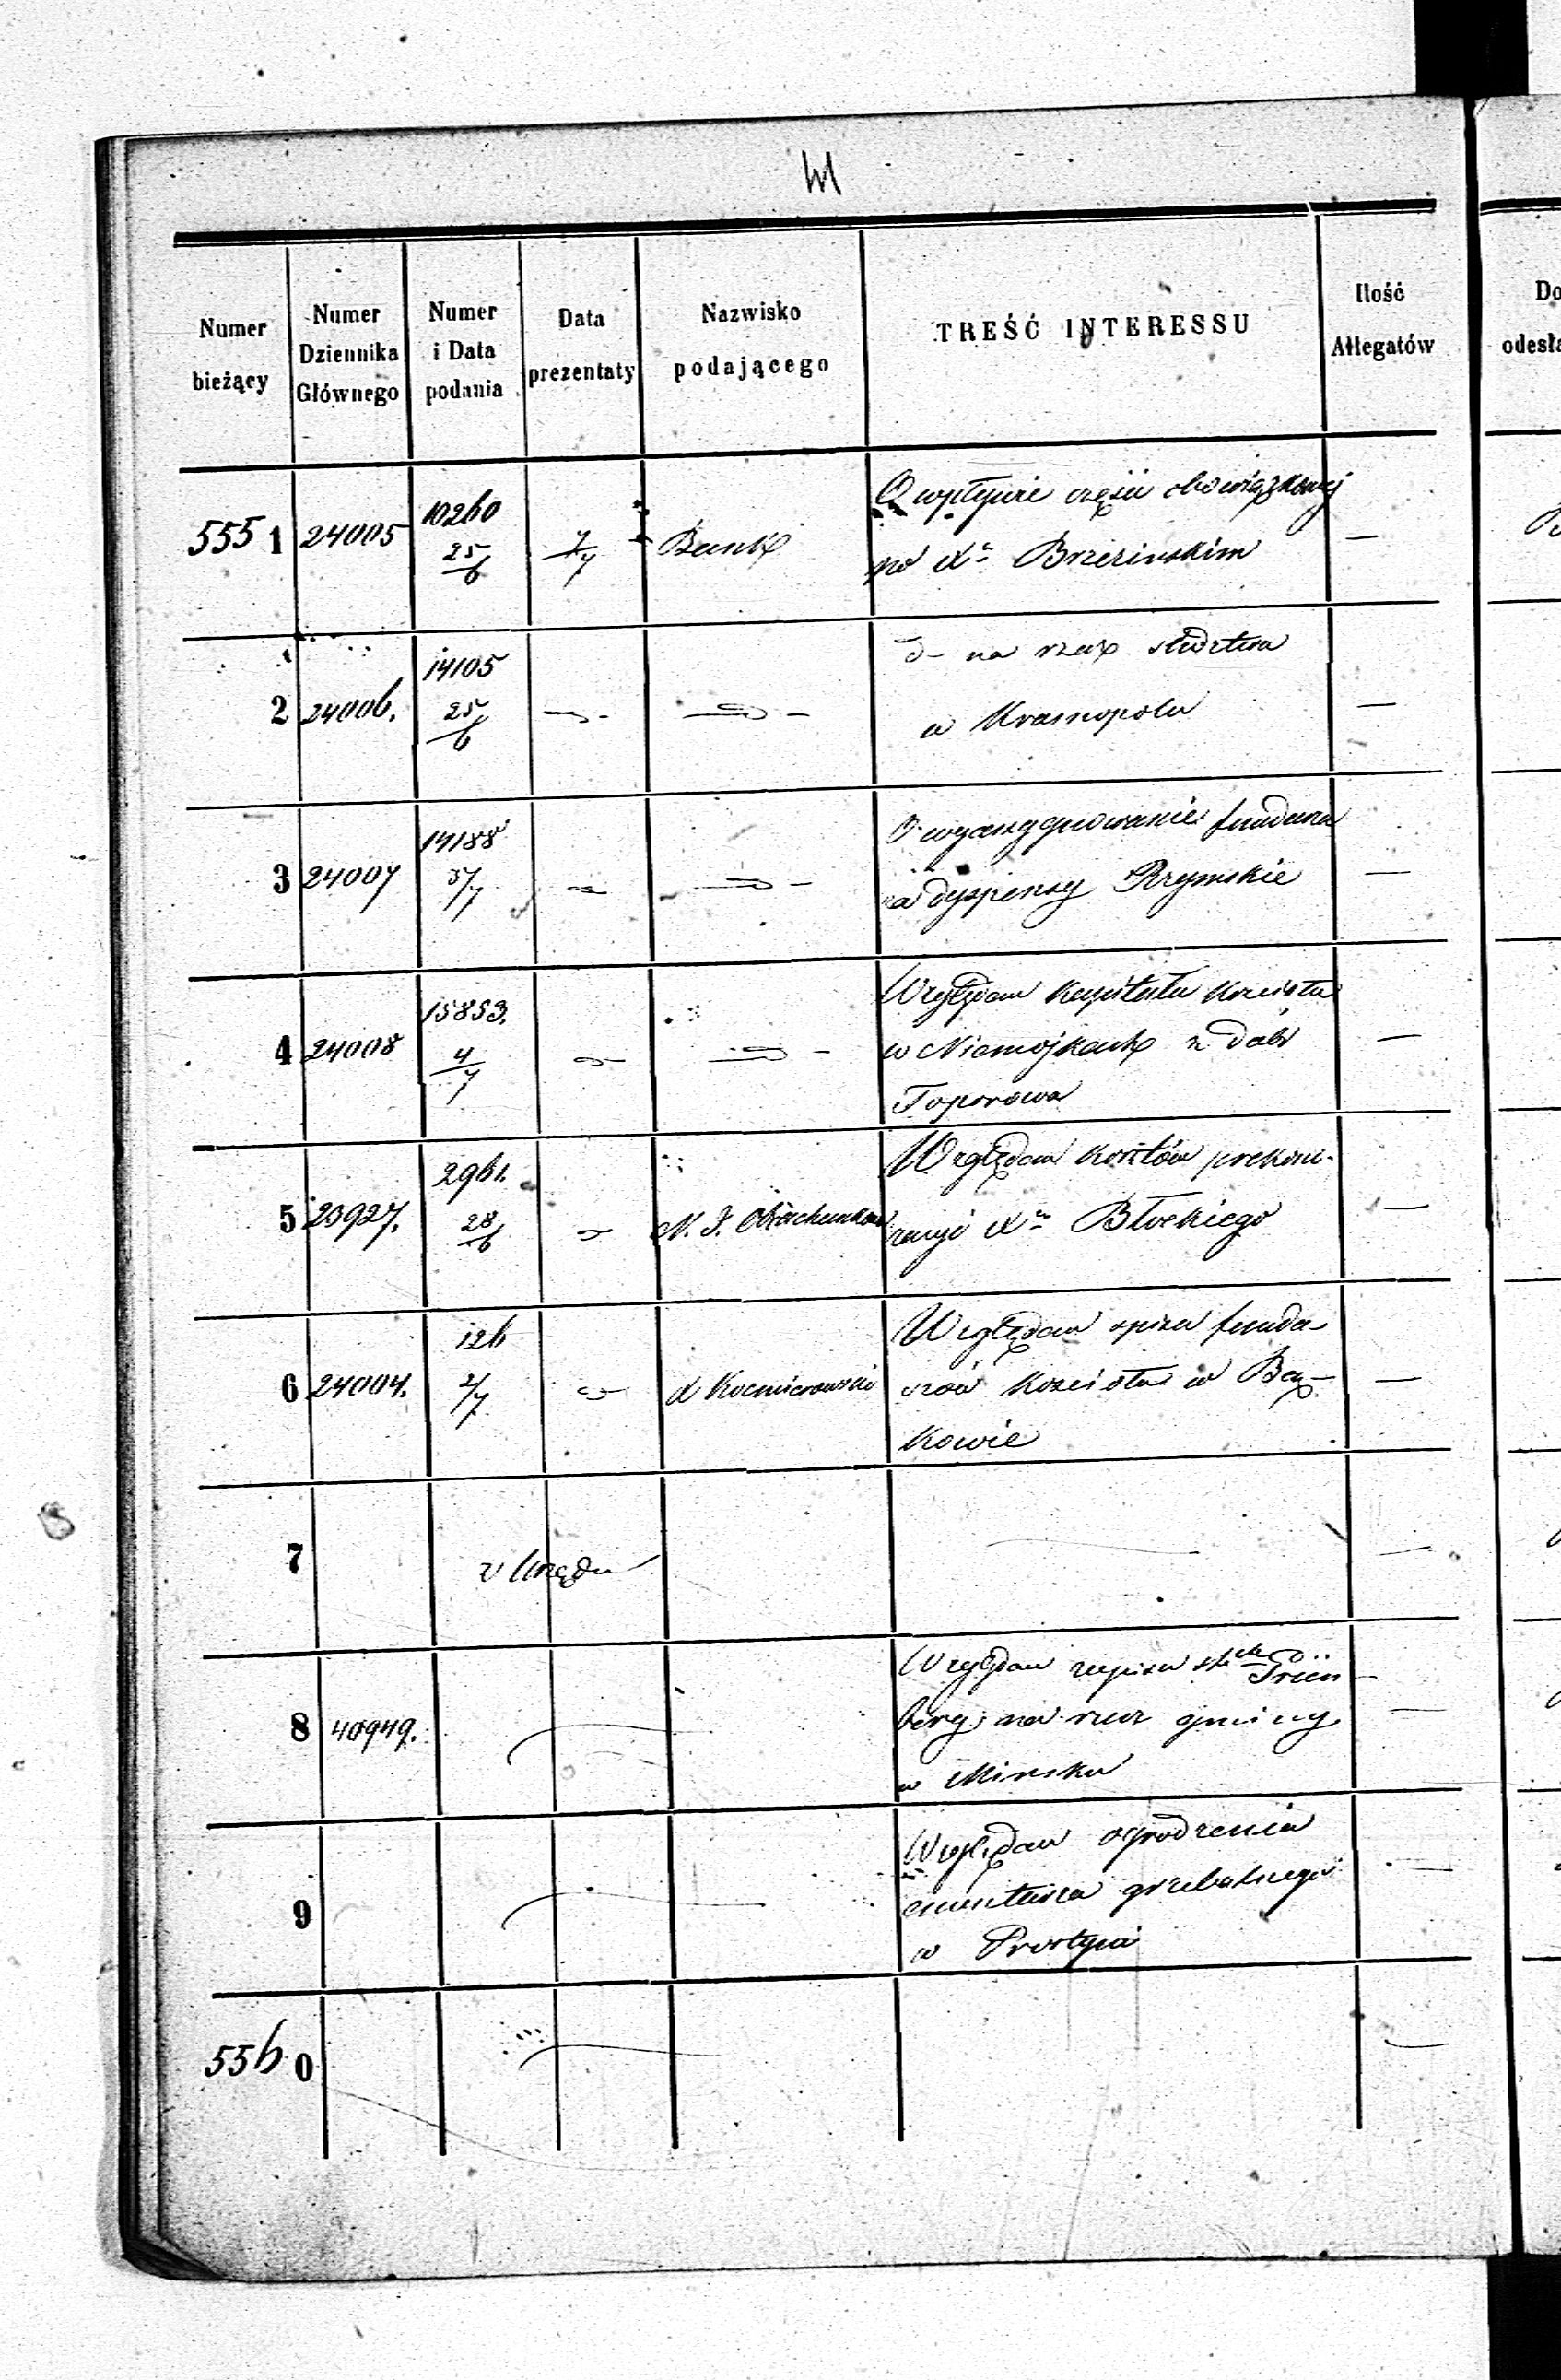 Numer bieżący
Numer Dziennika Głównego
Numer i Data podania
Data prezentaty
Nazwisko podającego
TREŚĆ INTERESSU
Ilość Allegatów
Do
odesła
5551 24005 10260 25/6 7/7 Bank O wpływie części obowiązkowej —
po Xu Brzezinskim
2 24006. 14105 25/6 na rzecz
w Krasnopolu —
3 24007 14188 5/7 O wyasygnowanie fundusza
na dyspensy Rzymskie —
4 24008 15853. 4/7 Względem kapitału kościoła
w Niemojkach z dóbr —
Toporowa
5 23927. 2961. 28/6 N. J. Względem kosztów prekoni-
zacyi Xa Błockiego —
6 24004. 126 2/7 X Względem spisu fundu-
szów kościoła w Bą- —
kowie
7 z Urzędu —
8 40949. Względem zapisu
berg na rzecz gminy —
w Minsku
9 Względem ogrodzenia
cmentarza grzebalnego —
w Prostyni
5560